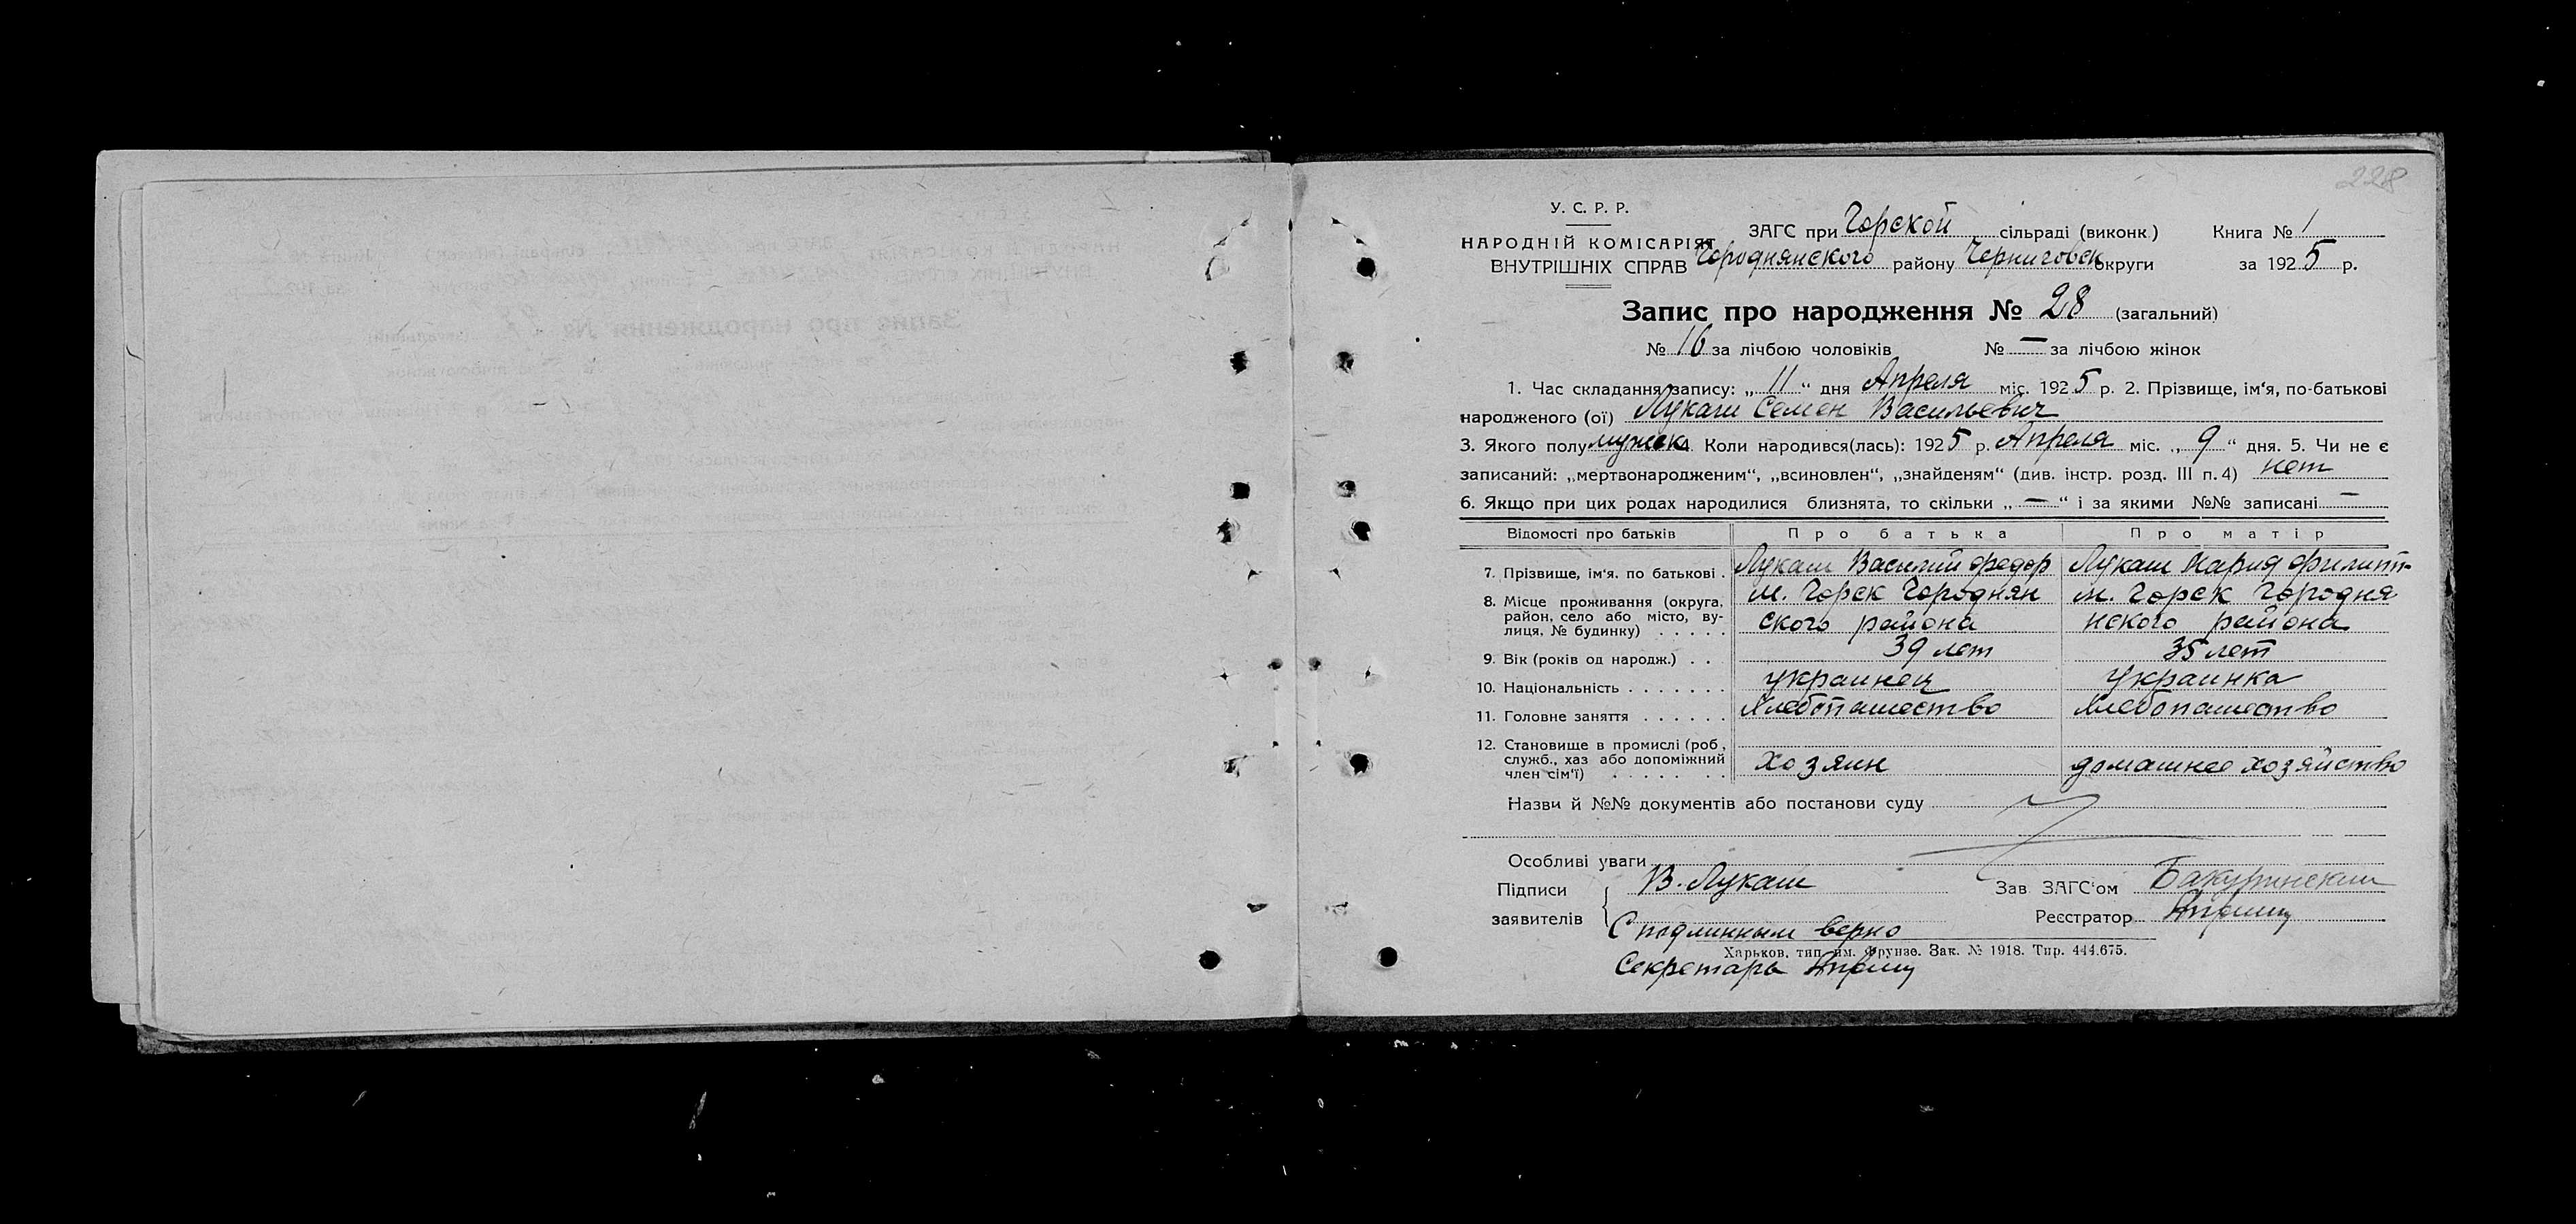 228
У. С. Р. Р.
НАРОДНІЙ КОМІСАРІЯТ
ВНУТРІШНІХ СПРАВ
ЗАГС при Горской сільраді (виконк.) Книга № 1
Городнянского району Черниговск округи за 1925 р.
Запис про народження № 28 (загальний)
№ 16 за лічбою чоловіків № — за лічбою жінок
1. Час складання запису: „11“ дня Апреля міс. 1925 р. 2. Прізвище, ім‘я, по-батькові
народженого (ої) Лукаш Семен Васильевич
3. Якого полу мужск 4. Коли народився(лась): 1925 р. Апреля міс. „9“ дня. 5. Чи не є
записаний: „мертвонародженим“, „всиновлен“, „знайденям“ (див. інстр. розд. III п. 4) нет
6. Якщо при цих родах народилися близнята, то скільки „—“ і за якими №№ записані —
Відомості про батьків Про батька Про матір
7. Прізвище, ім‘я. по батькові . Лукаш Василий Федор Лукаш Мария Филипп-
8. Місце проживання (округа, м. Горск Городнян м. Горск Городня
район, село або місто, ву- ского района нского района
лиця, № будинку) . . . . .
9. Вік (років од народж.) . . 39 лет 35 лет
10. Національність . . . . . . . украинец украинка
11. Головне заняття . . . . . . Хлебопашество Хлебопашество
12. Становище в промислі (роб.,
служб., хаз або допоміжний хозяин домашнее хозяйство
член сім‘ї) . . . . . . . .
Назви й №№ документів або постанови суду
Особливі уваги
Підписи В. Лукаш Зав ЗАГС‘ом Бакуринский
заявителів Реєстратор
С подлинным верно
Харьков, тип. им. Фрунзе. Зак. № 1918. Тир. 444.675.
Секретарь